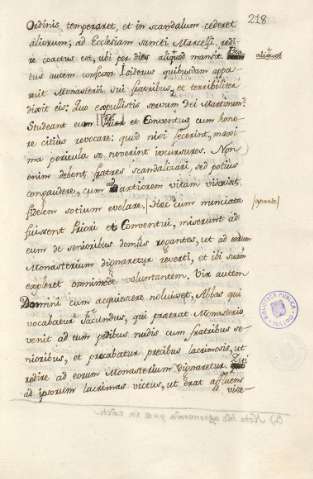 218
Ordinis temperaret, et in scandalum cederet
aliorum; ad Ecclesiam Sancti Marcelli, redi-
re coactus est, ubi per dies aliquod mansit
aliquot
tus autem confessor Isidorus quibusdam appa
ruit Monasterii sui fratribus, et terribiliter
dixit eis: Quo expulistis servum Dei Martinum?
Studeant eum Prior et Conventus cum hono-
re citius revocare: quid nisi fecerint, maxi
ma pericula se noverint incursuros. Non
enim debent fratres scandalizari, sed potius
congaudere, cum ad artiorem vitam viderint
fidelem sotium evolare. Hec cum nunciata
fuissent Priori et Conventui, miserunt ad
eum de senioribus domus rogantes, ut ad
Monasterium dignaretur reverti, et ibi suam
expleret omnimode voluntatem. Vir autem
Domini cum acquiescere noluisset, Abbas qui
vocabatur Facundus, qui preerat Monasterio
venit ad eum pedibus nudis cum fratribus se-
nioribus, et precabatur precibus lacrimosis, ut
redire ad eorum Monasterium dignaretur.
ad ipsorum lacrimas victus, ut erat affluens
vise-